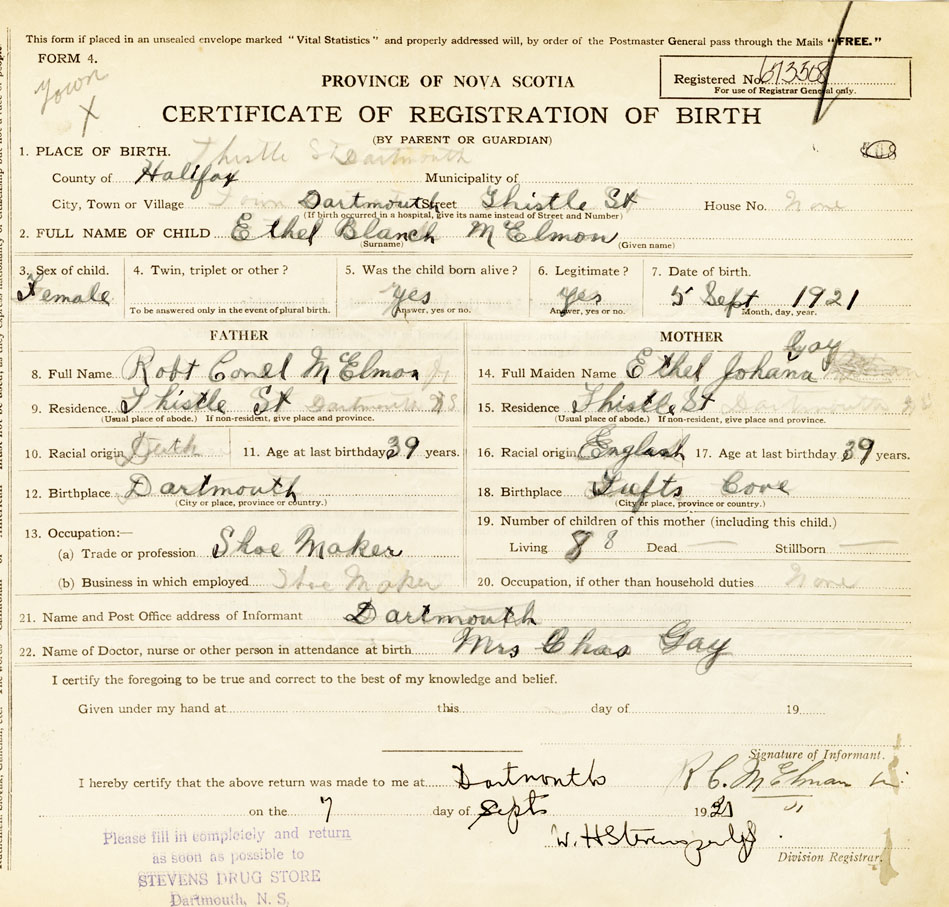 This form if placed in an unsealed envelope marked "Vital Statistics" and properly addressed will, by order of the Postmaster General pass through the Mails "FREE."
FORM 4.
Town
X
PROVINCE OF NOVA SCOTIA
Registered No.
For use of Registrar General only.
CERTIFICATE OF REGISTRATION OF BIRTH
(BY PARENT OR GUARDIAN)
1. PLACE OF BIRTH. Thistle St Dartmouth
County of Halifax Municipality of
City, Town or Village Town Dartmouth Street Thistle St House No. None
(If birth occurred in a hospital, give its name instead of Street and Number)
2. FULL NAME OF CHILD Ethel Blanch McElmon
(Surname) (Given name)
3. Sex of child. 4. Twin, triplet or other? 5. Was the child born alive? 6. Legitimate? 7. Date of birth.
Female Yes Yes 5 Sept 1921
To be answered only in the event of plural birth. Answer, yes or no. Answer, yes or no. Month, day, year.
FATHER MOTHER
Gay
8. Full Name Robt Conel McElmon 14. Full Maiden Name Ethel Johana
9. Residence Thistle St Dartmouth NS 15. Residence Thistle St Dartmouth NS
(Usual place of abode.) If non-resident, give place and province. (Usual place of abode.) If non-resident, give place and province.
10. Racial origin 11. Age at last birthday 39 years. 16. Racial origin English 17. Age at last birthday 39 years.
12. Birthplace Dartmouth 18. Birthplace Tufts Cove
(City or place, province or country.) (City or place, province or country.)
13. Occupation:— 19. Number of children of this mother (including this child.)
(a) Trade or profession Shoe Maker Living 8 8 Dead — Stillborn —
(b) Business in which employed Shoe Maker 20. Occupation, if other than household duties None
21. Name and Post Office address of Informant Dartmouth
22. Name of Doctor, nurse or other person in attendance at birth Mrs Chas Gay
I certify the foregoing to be true and correct to the best of my knowledge and belief.
Given under my hand at this day of 19
Signature of Informant.
I hereby certify that the above return was made to me at Dartmouth R C. McElman
on the 7 day of Septs 1921
W. H Stevens
Division Registrar.
Please fill in completely and return
as soon as possible to
STEVENS DRUG STORE
Dartmouth, N. S,